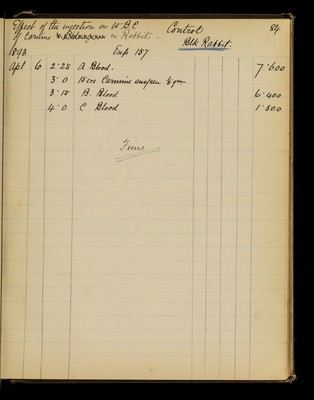 Effect of the injection on W.B.C. Control 84
of Carmine in Rabbit. Blk Rabbit.
1893 Exp 157
Apl 6 2.28 A Blood. 7.600
3.0 15 ccs Carmine
3.18 B. Blood 6.400
4.0 C Blood 1.500
Finis